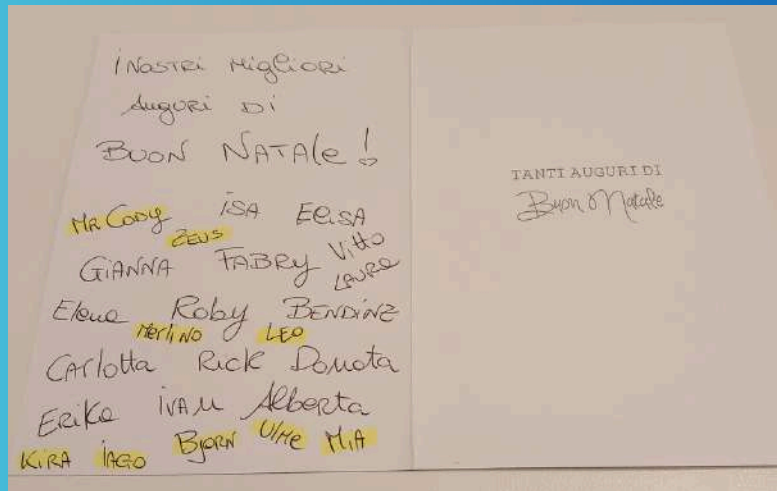 iNOSTRi MigLiORi
AuguRi Di
BUON NATAle!
MR CODY iSA ELiSA
ZEUS
GiANNA FABRY Vitto
LAURA
Elena Roby BENDiNE
MERliNO LEO
CARlotta RiCK Donata
ERiKa iVAN Alberta
KiRA iAGO BJORN MiA
TANTI AUGURI DI
Buon Natale